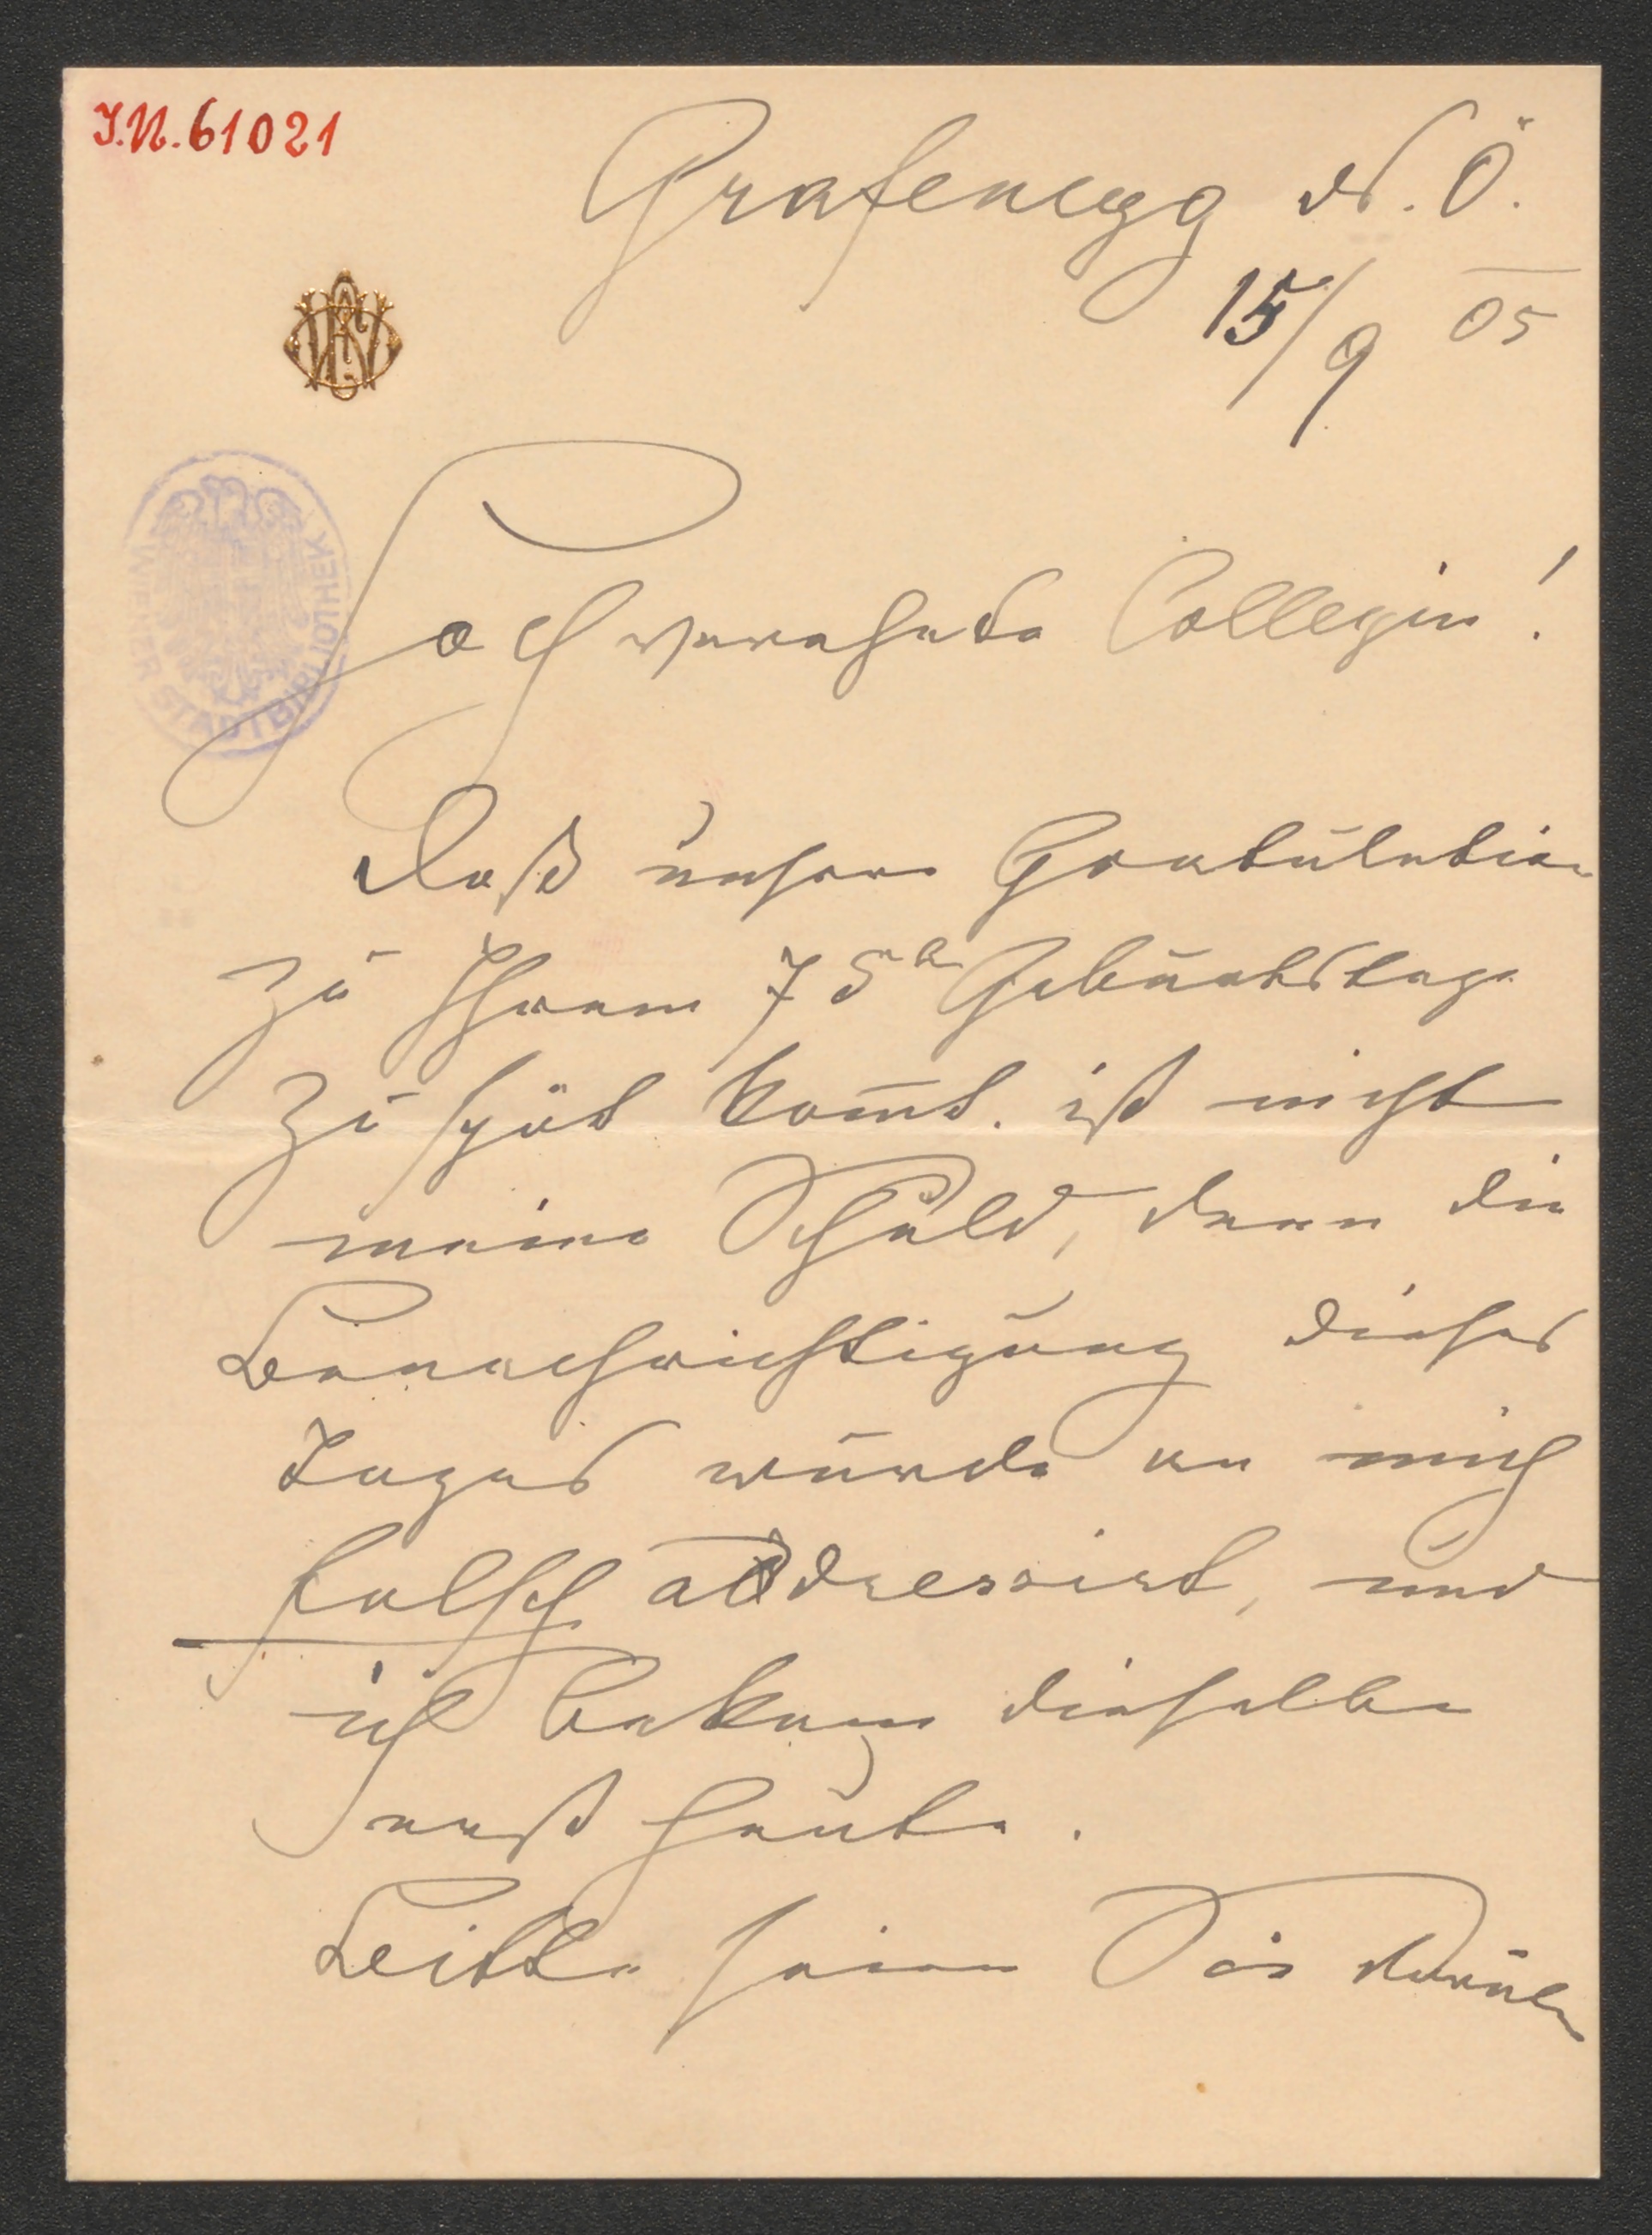 I.N. 61021
Grafenegg N. Ö.
15/9 05
WIENER STADTBIBLIOTHEK
Hochverehrte Collegin!
Daß unsere Gratulation
zu Ihrem 75ten Geburtstage
zu spät kom̄t. ist nicht
meine Schuld, denn die
Benachrichtigung dieses
Tages wurde an mich
falsch addressirt, und
ich bekam dieselbe
erst heute.
Bitte seien Sie